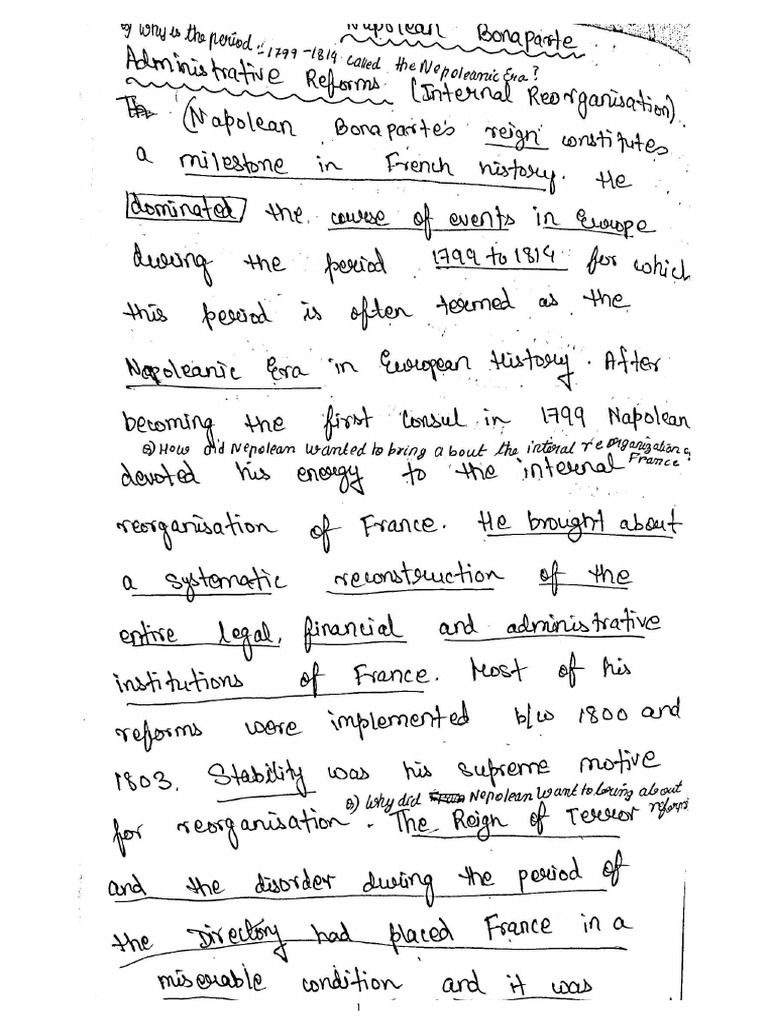 Q) Why is the period :- 1799-1814 called the Nepoleanic Era?
Napolean Bonaparte
Administrative Reforms (Internal Reorganisation)
Th (Napolean Bonaparte's reign constitutes
a milestone in French history. He
dominated the course of events in Europe
during the period 1799 to 1814 for which
this period is often termed as the
Napoleanic Era in European History. After
becoming the first Consul in 1799 Napolean
Q) How did Nepolean wanted to bring a bout the interal reorganization of France?
devoted his energy to the internal
reorganisation of France. He brought about
a systematic reconstruction of the
entire legal, financial and administrative
institutions of France. Most of his
reforms were implemented b/w 1800 and
1803. Stability was his supreme motive
Q) Why did Nepolean want to bring about reform
for reorganisation. The Reign of Terror
and the disorder during the period of
the Directory had placed France in a
miserable condition and it was
1